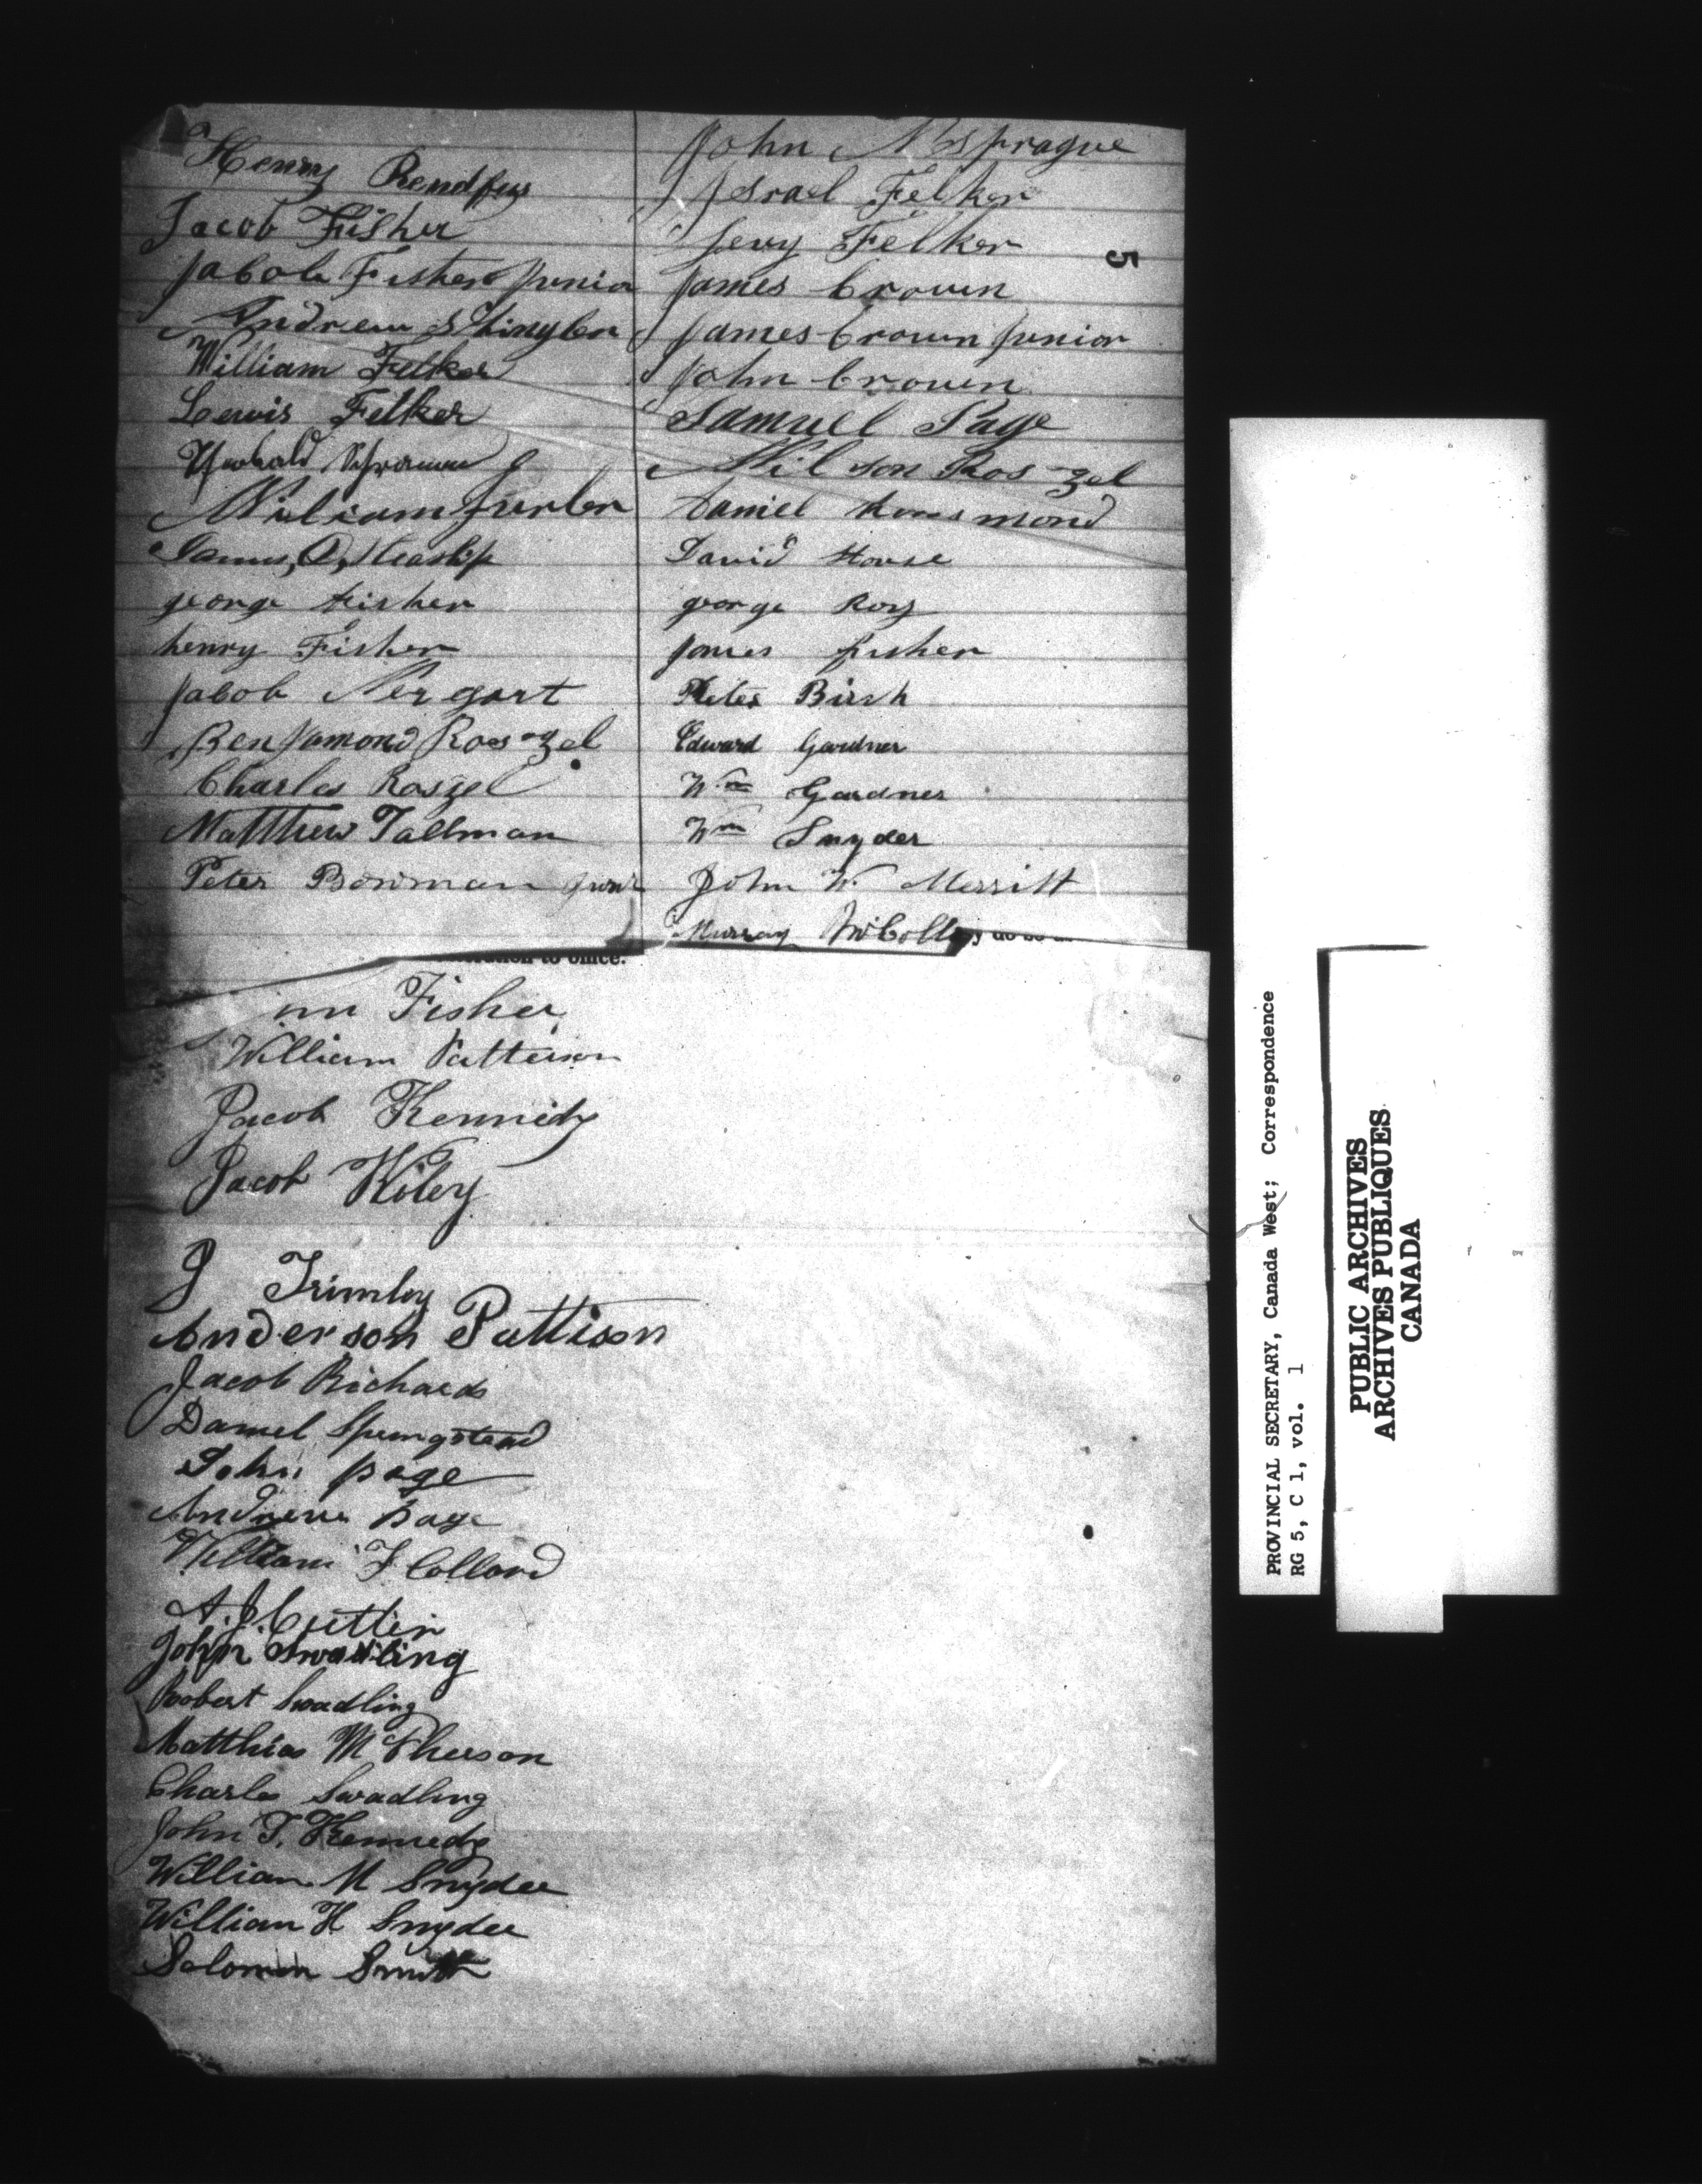 Henry Rendfus
Jacob Fisher
Jabob Fisher Junior
Andrew Shingler
William Felker
Lewis Felker
William Furler
James,
george Fisher
henry Fisher
Jabob Nergart
Benjamond Roes zel
Charles Roszel
Matthew Tallman
Peter Bowman Junr
John N Sprague
Israel Felker
Levy Felker
5
James brown
James brown Junior
John brown
Samuel Page
Wilson Ros zel
Daniel
David House
george Roy
James Fisher
Peter Birsh
Edward Gardner
Wm Gardner
Wm Snyder
John W. Merritt
Murray McColl
to office.
Fisher
William Patterson
Jacob Kennedy
Jacob Kiley
J Trimley
Anderson Pattison
Jacob Richards
Daniel Springstead
John page
Andrew page
William F Collard
A. J. Cutler
John Swadling
Robert Swadling
Matthias McPherson
Charles Swadling
John T. Kennedy
William M Snyder
William H Snyder
Solomon Smith
PROVINCIAL SECRETARY, Canada West; Correspondence
RG 5, C 1, vol. 1
PUBLIC ARCHIVES
ARCHIVES PUBLIQUES
CANADA